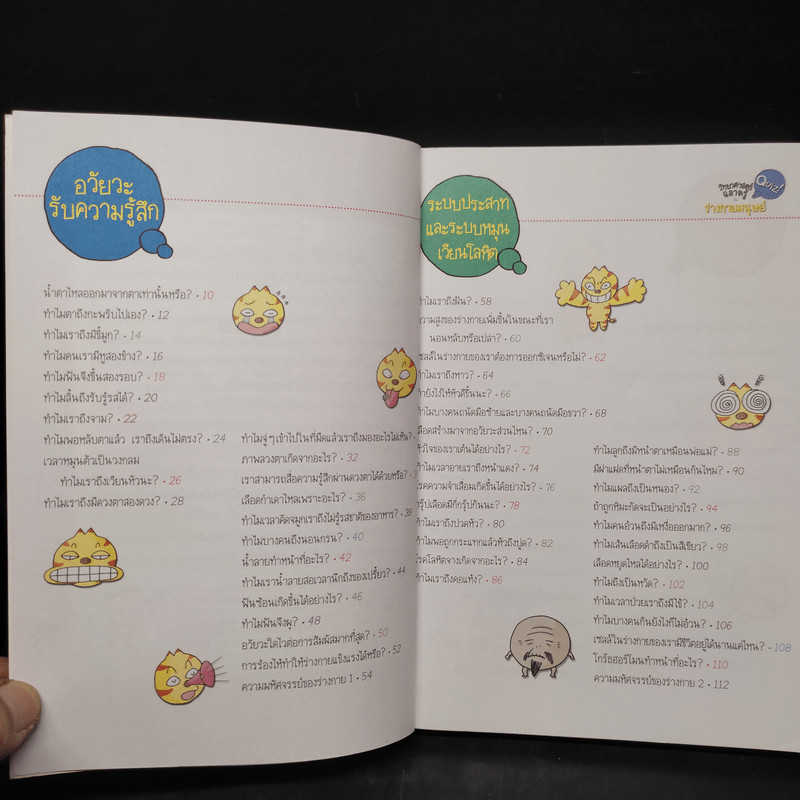 อวัยวะ
รับความรู้สึก
น้ำตาไหลออกมาจากตาเท่านั้นหรือ? • 10
ทำไมตาถึงกะพริบไปเอง? • 12
ทำไมเราถึงมีขี้มูก? • 14
ทำไมคนเรามีหูสองข้าง? • 16
ทำไมฟันจึงขึ้นสองรอบ? • 18
ทำไมลิ้นถึงรับรู้รสได้? • 20
ทำไมเราถึงจาม? • 22
ทำไมพอหลับตาแล้ว เราถึงเดินไม่ตรง? • 24
เวลาหมุนตัวเป็นวงกลม
ทำไมเราถึงเวียนหัวนะ? • 26
ทำไมเราถึงมีดวงตาสองดวง? • 28
ทำไมจู่ๆเข้าไปในที่มืดแล้วเราถึงมองอะไรไม่เห็น?
ภาพลวงตาเกิดจากอะไร? • 32
เราสามารถสื่อความรู้สึกผ่านดวงตาได้ด้วยหรือ?
เลือดกำเดาไหลเพราะอะไร? • 36
ทำไมเวลาคัดจมูกเราถึงไม่รู้รสชาติของอาหาร? • 38
ทำไมบางคนถึงนอนกรน? • 40
น้ำลายทำหน้าที่อะไร? • 42
ทำไมเราน้ำลายสอเวลานึกถึงของเปรี้ยว? • 44
ฟันซ้อนเกิดขึ้นได้อย่างไร? • 46
ทำไมฟันจึงผุ? • 48
อวัยวะใดไวต่อการสัมผัสมากที่สุด? • 50
การร้องไห้ทำให้ร่างกายแข็งแรงได้หรือ? • 52
ความมหัศจรรย์ของร่างกาย 1 • 54
ระบบประสาท
และระบบหมุน
เวียนโลหิต
วิทยาศาสตร์
ฉลาดรู้
Quiz!
ร่างกายมนุษย์
ทำไมเราถึงฝัน? • 58
ความสูงของร่างกายเพิ่มขึ้นในขณะที่เรา
นอนหลับหรือเปล่า? • 60
เซลล์ในร่างกายของเราต้องการออกซิเจนหรือไม่? • 62
ทำไมเราถึงหาว? • 64
ทำยังไงให้หัวดีขึ้นนะ? • 66
ทำไมบางคนถนัดมือซ้ายและบางคนถนัดมือขวา? • 68
เลือดสร้างมาจากอวัยวะส่วนไหน? • 70
หัวใจของเราเต้นได้อย่างไร? • 72
ทำไมเวลาอายเราถึงหน้าแดง? • 74
โรคความจำเสื่อมเกิดขึ้นได้อย่างไร? • 76
กรุ๊ปเลือดมีกี่กรุ๊ปกันนะ? • 78
ทำไมเราถึงปวดหัว? • 80
ทำไมพอถูกกระแทกแล้วหัวถึงปูด? • 82
โรคโลหิตจางเกิดจากอะไร? • 84
ทำไมเราถึงคอแห้ง? • 86
ทำไมลูกถึงมีหน้าตาเหมือนพ่อแม่? • 88
มีฝาแฝดที่หน้าตาไม่เหมือนกันไหม? • 90
ทำไมแผลถึงเป็นหนอง? • 92
ถ้าถูกหิมะกัดจะเป็นอย่างไร? • 94
ทำไมคนอ้วนถึงมีเหงื่อออกมาก? • 96
ทำไมเส้นเลือดดำถึงเป็นสีเขียว? • 98
เลือดหยุดไหลได้อย่างไร? • 100
ทำไมถึงเป็นหวัด? • 102
ทำไมเวลาป่วยเราถึงมีไข้? • 104
ทำไมบางคนกินยังไงก็ไม่อ้วน? • 106
เซลล์ในร่างกายของเรามีชีวิตอยู่ได้นานแค่ไหน? • 108
โกร๊ธฮอร์โมนทำหน้าที่อะไร? • 110
ความมหัศจรรย์ของร่างกาย 2 • 112